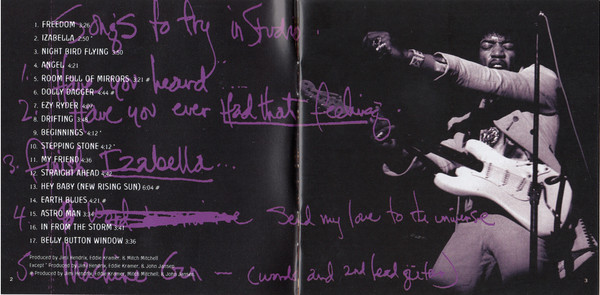 Songs to try in Studio..
1. FREEDOM 3:26
2. IZABELLA 2:50 *
3. NIGHT BIRD FLYING 3:50
4. ANGEL 4:21
5. ROOM FULL OF MIRRORS 3:21 #
6. DOLLY DAGGER 4:44 #
7. EZY RYDER 4:07
8. DRIFTING 3:48
9. BEGINNINGS 4:12 *
10. STEPPING STONE 4:12 *
11. MY FRIEND 4:36
12. STRAIGHT AHEAD 4:42
13. HEY BABY (NEW RISING SUN) 6:04 #
14. EARTH BLUES 4:21 #
15. ASTRO MAN 3:34
16. IN FROM THE STORM 3:41
17. BELLY BUTTON WINDOW 3:36
1. Have you heard
2. Have you ever Had that feeling
3. Finish Izabella...
4. Send my love to the universe
5. Machine Gun — (words and 2nd lead guitar)
Produced by Jimi Hendrix, Eddie Kramer, & Mitch Mitchell
Except * Produced by Jimi Hendrix, Eddie Kramer, & John Jansen
# Produced by Jimi Hendrix, Eddie Kramer, Mitch Mitchell, & John Jansen
2
3